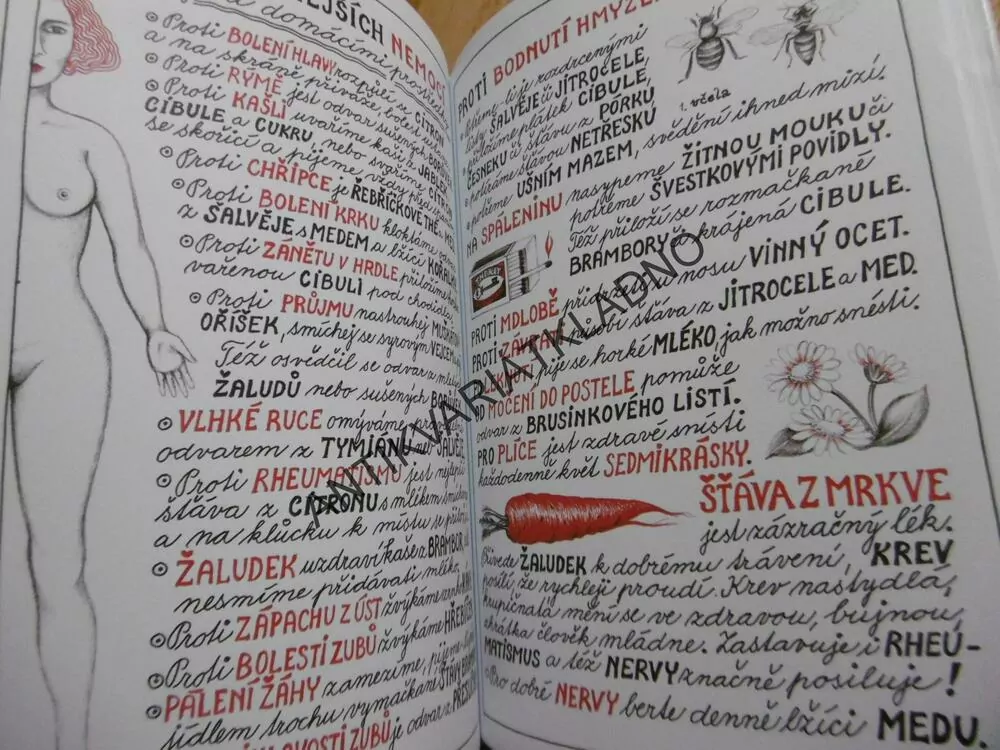 NEJŠÍCH NEMOCÍ
domácími prostředk
Proti BOLENÍ HLAVY rozpůlí se CITRÓN
a na skráně přiváže, bolest
Proti RÝMĚ jest odvar sušených
Proti KAŠLI uvaříme kaši z JABLEK
CIBULE a CUKRU nebo svaříme
se skořicí a pijeme, vždy před
Proti CHŘIPCE je ŘEBŘÍČKOVÉ THÉ
Proti BOLENÍ KRKU kloktáme
z ŠALVĚJE s MEDEM a lžící KOŘALKY
Proti ZÁNĚTU V HRDLE přiložíme
vařenou CIBULI pod chodidla
Proti PRŮJMU nastrouhej MUŠKÁTOVÝ
OŘÍŠEK, smíchej se syrovým VEJCEM
Též osvědčil se odvar z
ŽALUDŮ nebo sušených BORŮVEK
VLHKÉ RUCE omýváme
odvarem z TYMIÁNU neb ŠALVĚJE
Proti RHEUMATISMU jest nejlepší
šťáva z CITRÓNU s mlékem smíchaná
a na klůcku k místu se přiloží
ŽALUDEK uzdraví kaše z BRAMBOR
nesmíme přidávati mléko,
Proti ZÁPACHU Z ÚST žvýkáme
Proti BOLESTI ZUBŮ žvýkáme HŘEBÍČEK
PÁLENÍ ŽÁHY zamezíme, pijeme-li
jídlem trochu vymačkané ŠŤÁVY
ZUBŮ je odvar z
PROTI BODNUTÍ HMYZEM
li je rozdrcenými
listy ŠALVĚJE či JITROCELE,
přiložíme plátek CIBULE,
ČESNEKU či šťávu z PÓRKU
potíráme šťávou NETŘESKU
potřeme UŠNÍM MAZEM, svědění ihned mizí.
1. včela
NA SPÁLENINU nasypeme ŽITNOU MOUKU či
potřeme ŠVESTKOVÝMI POVIDLY.
Též přiloží se rozmačkané
BRAMBORY či krájená CIBULE.
PROTI MDLOBĚ přidržeti u nosu VINNÝ OCET.
PROTI působí šťáva z JITROCELE a MED.
pije se horké MLÉKO, jak možno snésti.
OD MOČENÍ DO POSTELE pomůže
odvar z BRUSINKOVÉHO LISTÍ.
PRO PLÍCE jest zdravé snísti
každodenně květ SEDMIKRÁSKY.
ŠŤÁVA Z MRKVE
jest zázračný lék.
Přivede ŽALUDEK k dobrému trávení, KREV
posílí, že rychleji proudí. Krev nastydlá,
krupičnatá mění se ve zdravou, bujnou,
zkrátka člověk mládne. Zastavuje i RHEU-
MATISMUS a též NERVY značně posiluje!
Pro dobré NERVY berte denně lžíci MEDU.
ANTIKVARIÁT KLADNO